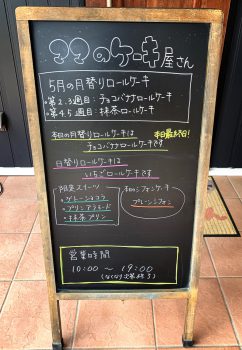 ママのケーキ屋さん
5月の月替りロールケーキ
・第2.3週目：チョコバナナロールケーキ
・第4.5週目：抹茶ロールケーキ
本日の月替りロールケーキは 本日最終日!
チョコバナナロールケーキです
日替りロールケーキは
いちごロールケーキです
限定スイーツ
・ガトーショコラ
・プリンアラモード
・抹茶プリン
本日のシフォンケーキ
プレーンシフォン
営業時間
10:00 〜 19:00
(なくなり次第終了)